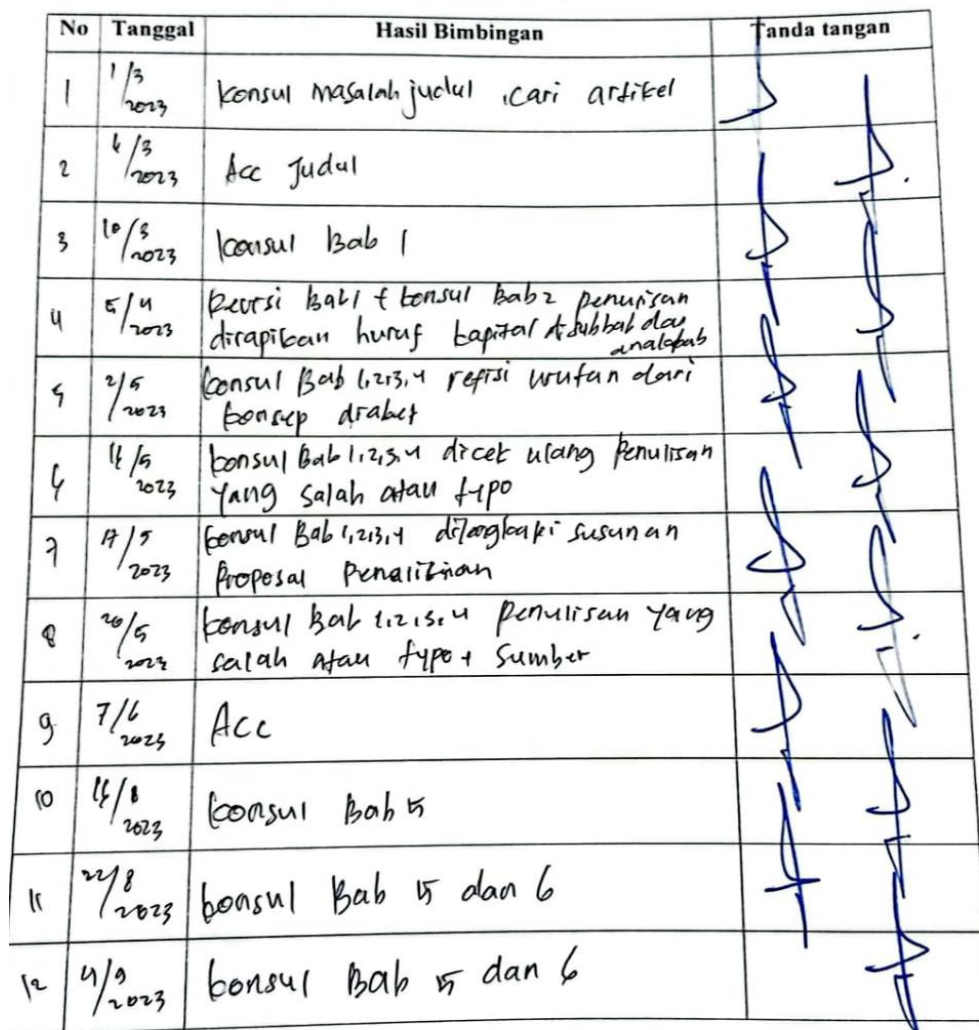 No Tanggal Hasil Bimbingan Tanda tangan
1 1/3 2023 konsul masalah judul, cari artikel
2 6/3 2023 Acc Judul
3 10/3 2023 konsul Bab 1
4 5/4 2023 Revisi Bab 1 + konsul Bab 2 penulisan
dirapikan huruf kapital disubbab dan
anak bab
5 2/5 2023 konsul Bab 1,2,3,4 refisi urutan dari
konsep diabet
6 /5 2023 konsul Bab 1,2,3,4 dicek ulang penulisan
yang salah atau typo
7 17/5 2023 konsul Bab 1,2,3,4 dilengkapi susunan
Proposal Penelitian
8 26/5 2023 konsul Bab 1,2,3,4 penulisan yang
salah atau typo + sumber
9 7/6 2023 Acc
10 /8 2023 konsul Bab 5
11 22/8 2023 konsul Bab 5 dan 6
12 4/9 2023 konsul Bab 5 dan 6